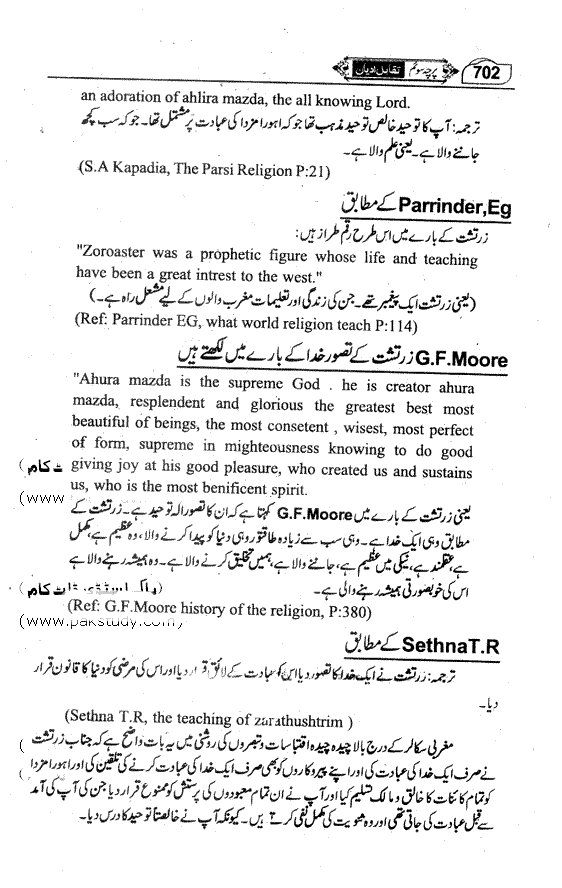 702 پرچہ سوئم تقابل ادیان
an adoration of ahlira mazda, the all knowing Lord.
ترجمہ: آپ کا توحید خالص توحید مذہب تھا جو کہ اہورا مزدا کی عبادت پر مشتمل تھا۔ جو کہ سب کچھ
جاننے والا ہے۔ یعنی علم والا ہے۔
(S.A Kapadia, The Parsi Religion P:21)
Parrinder,Eg کے مطابق
زرتشت کے بارے میں اس طرح رقم طراز ہیں:
"Zoroaster was a prophetic figure whose life and teaching
have been a great intrest to the west."
(یعنی زرتشت ایک پیغمبر تھے۔ جن کی زندگی اور تعلیمات مغرب والوں کے لیے مشعل راہ ہے۔)
(Ref: Parrinder EG, what world religion teach P:114)
G.F.Moore زرتشت کے تصور خدا کے بارے میں لکھتے ہیں
"Ahura mazda is the supreme God . he is creator ahura
mazda, resplendent and glorious the greatest best most
beautiful of beings, the most consetent , wisest, most perfect
of form, supreme in mighteousness knowing to do good
giving joy at his good pleasure, who created us and sustains
us, who is the most benificent spirit.
ٹ کام )
(www
یعنی زرتشت کے بارے میں G.F.Moore کہتا ہے کہ ان کا تصور الہ توحید ہے۔ زرتشت کے
مطابق وہی ایک خدا ہے۔ وہی سب سے زیادہ طاقتور وہی دنیا کو پیدا کرنے والا، وہ عظیم ہے، مکمل
ہے، عقلمند ہے، نیکی میں عظیم ہے، جاننے والا ہے، ہمیں تخلیق کرنے والا ہے۔ وہ ہمیشہ رہنے والا ہے
اس کی خوبصورتی ہمیشہ رہنے والی ہے۔
(پاک اسٹڈی ڈاٹ کام )
(Ref: G.F.Moore history of the religion, P:380)
(www.pakstudy.com )
SethnaT.R کے مطابق
ترجمہ: زرتشت نے ایک خدا کا تصور دیا اس کو عبادت کے لائق قرار دیا اور اس کی مرضی کو دنیا کا قانون قرار
دیا۔
(Sethna T.R, the teaching of zarathushtrim )
مغربی سکالر کے درج بالا چیدہ چیدہ اقتباسات و تبصروں کی روشنی میں یہ بات واضح ہے کہ جناب زرتشت
نے صرف ایک خدا کی عبادت کی اور اپنے پیروکاروں کو بھی صرف ایک خدا کی عبادت کرنے کی تلقین کی اور اہورا مزدا
کو تمام کائنات کا خالق و مالک تسلیم کیا اور آپ نے ان تمام معبودوں کی پرستش کو ممنوع قرار دیا جن کی آپ کی آمد
سے قبل عبادت کی جاتی تھی اور وہ ثنویت کی مکمل نفی کرتے ہیں۔ کیونکہ آپ نے خالصتاً توحید کا درس دیا۔